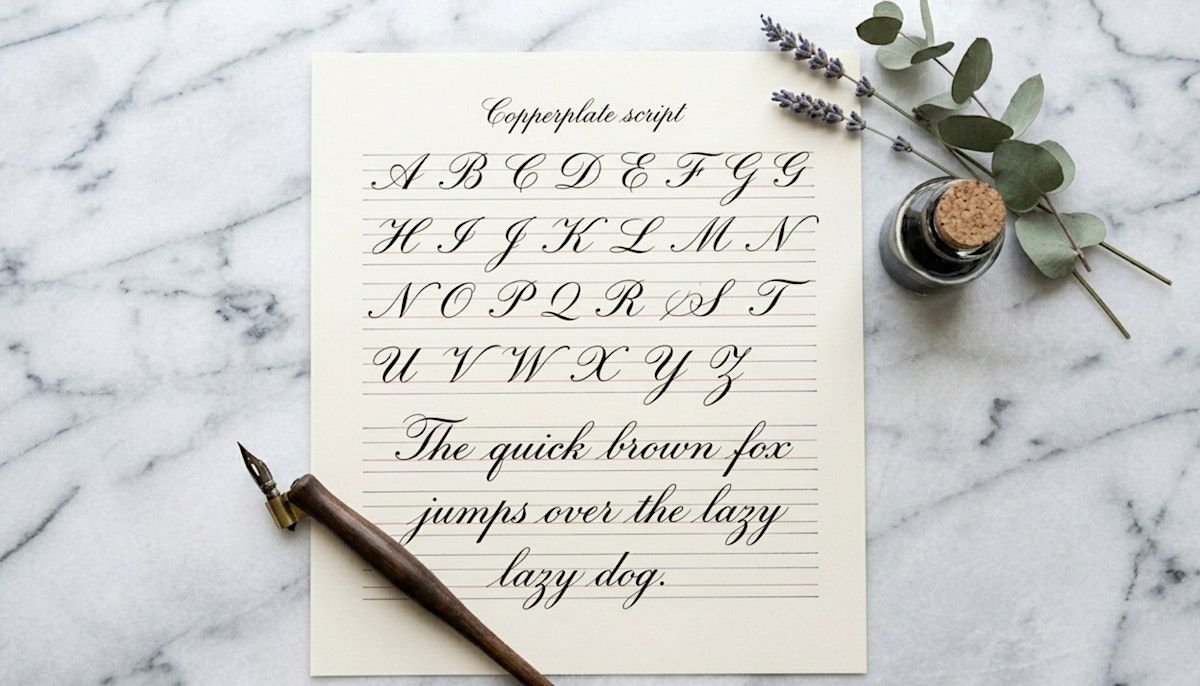 Copperplate script
A B C D E F G G
H I J K L M N
N O P Q R S T
U V W X Y Z
The quick brown fox
jumps over the lazy
lazy dog.